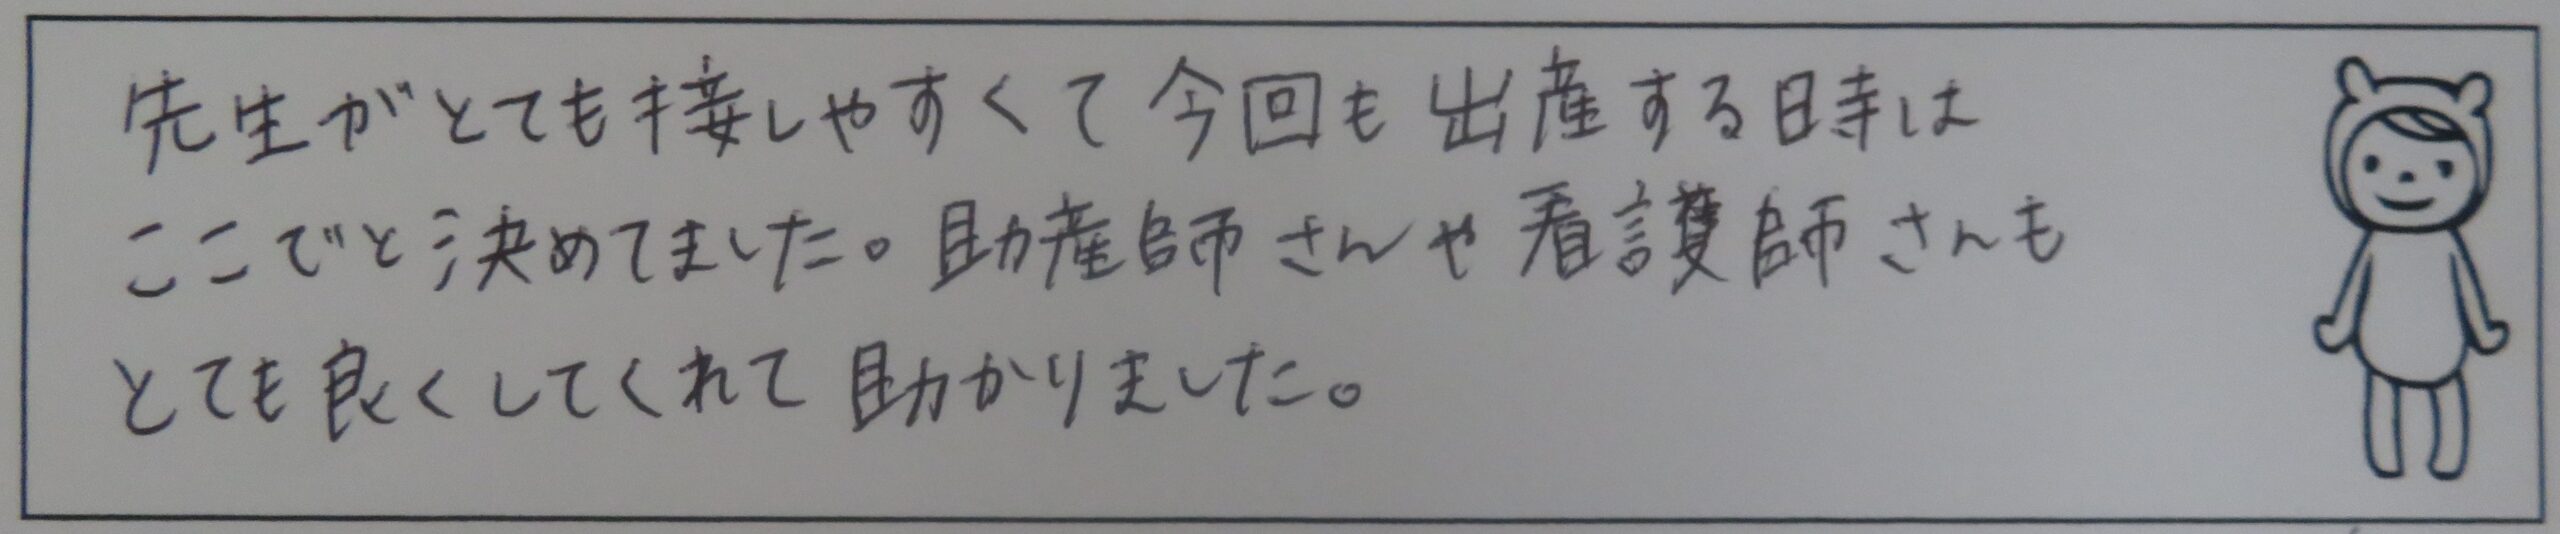 先生がとても接しやすくて今回も出産する時は
ここでと決めてました。助産師さんや看護師さんも
とても良くしてくれて助かりました。